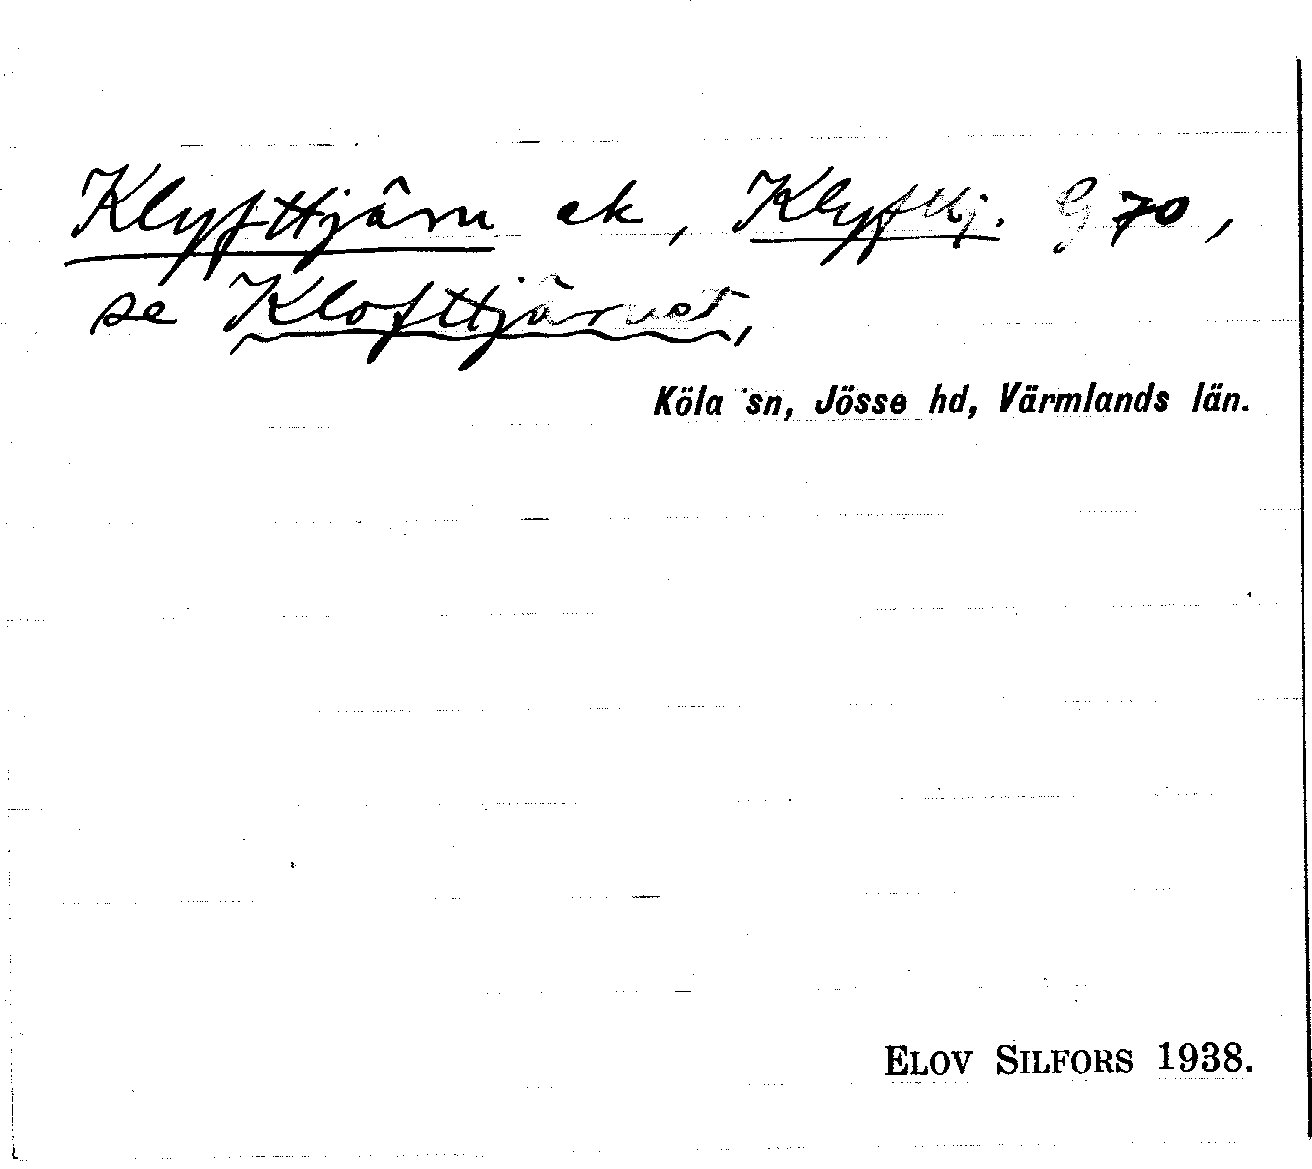 Klyfttjärn ek, Klyfttj. G 70,
se Klofttjärnet,
Köla sn, Jösse hd, Värmlands län.
ELOV SILFORS 1938.